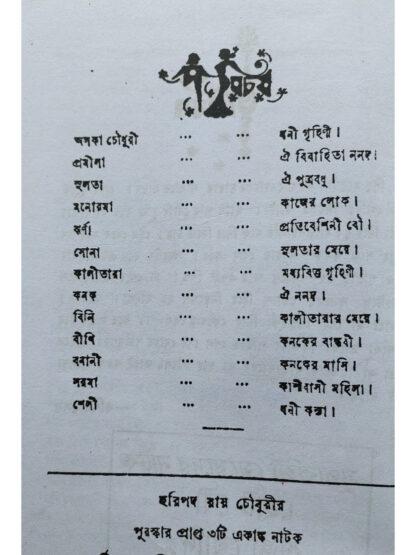 পরিচয়
অলকা চৌধুরী ... ... ধনী গৃহিণী।
প্রমীলা ... ... ঐ বিবাহিতা ননদ।
সুলতা ... ... ঐ পুত্রবধূ।
মনোরমা ... ... কাজের লোক।
স্বর্ণা ... ... প্রতিবেশিনী বৌ।
সোনা ... ... সুলতার মেয়ে।
কালীতারা ... ... মধ্যবিত্ত গৃহিণী।
কনক ... ... ঐ ননদ।
বিনি ... ... কালীতারার মেয়ে।
বীথি ... ... কনকের বান্ধবী।
ভবানী ... ... কনকের মাসি।
সরমা ... ... কাশীবাসী মহিলা।
শেলী ... ... ধনী কন্যা।
হরিপদ রায় চৌধুরীর
পুরস্কার প্রাপ্ত ৩টি একাঙ্ক নাটক